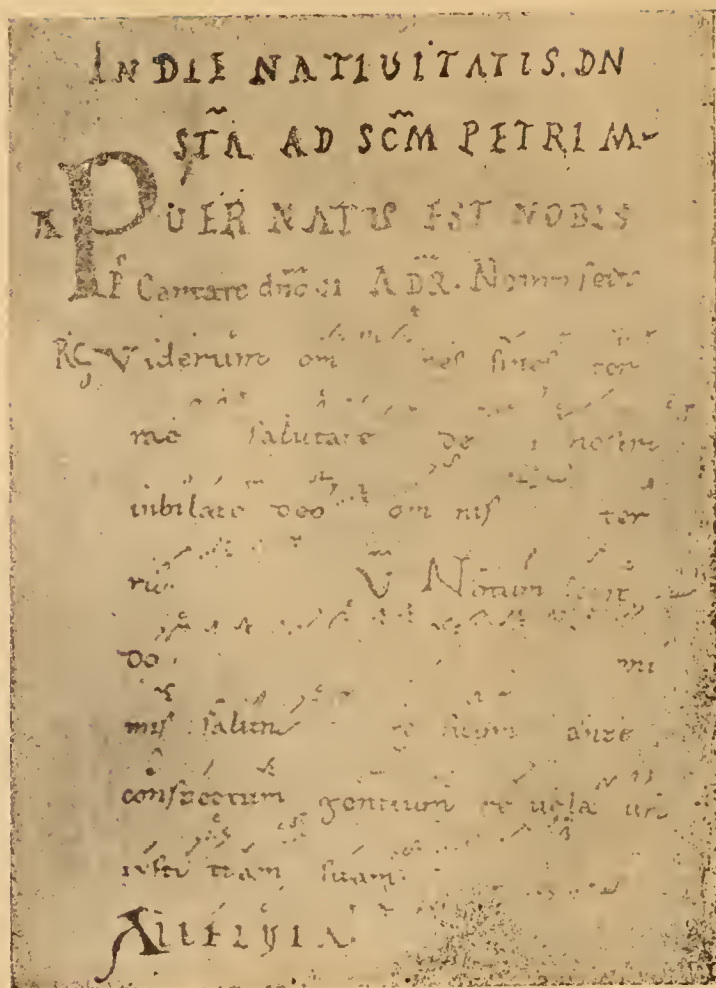 IN DIE NATIUITATIS. DN
STĀ AD SC̄M PETRI M
A PUER NATUS EST NOBIS
Cantate dn̄o AD R. Nom
RG Viderunt om nes fines ter
rae salutare de nostri
iubilate deo om nis ter
ra V Notum fecit
do mi
nus salut suum ante
conspectum gentium re uela uit
iusti tiam suam.
ALLELUIA.